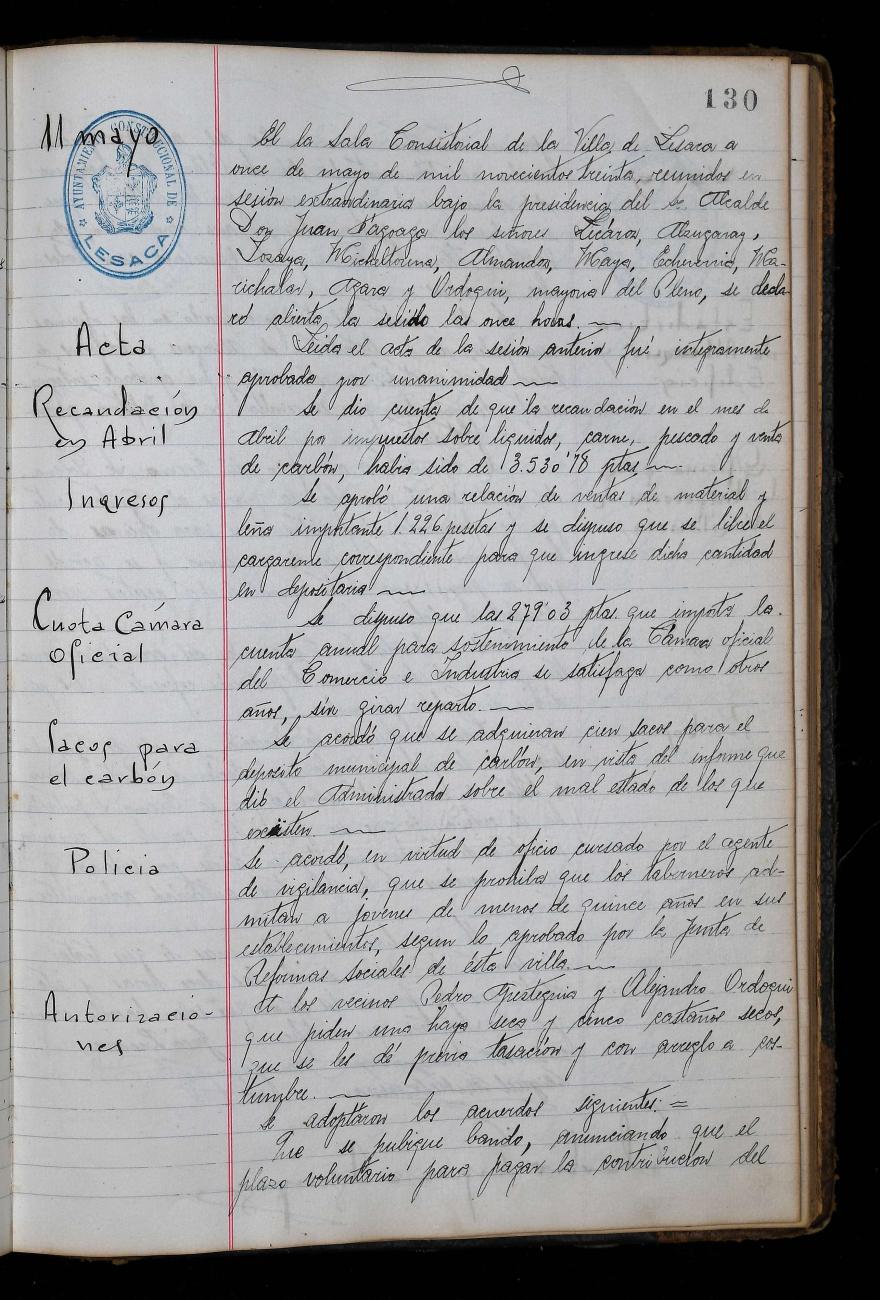 130
11 mayo
AYUNTAMIENTO CONSTITUCIONAL DE
LESACA
En la Sala Consistorial de la Villa de Lesaca a
once de mayo de mil novecientos treinta, reunidos en
sesión extraordinaria bajo la presidencia del sr. Alcalde
Don Juan Fagoaga los señores Lecároz, Alzugaray,
Lozaya, Michaltorena, Almandoz, Maya, Echeverria, Ma-
richalar, Agara y Ordoqui, mayoria del Pleno, se decla-
ró abierta la sesión las once horas.
Acta
Leida el acta de la sesión anterior fué integramente
aprobada por unanimidad
Recaudación
en Abril
Se dio cuenta de que la recaudación en el mes de
Abril por impuestos sobre liquidos, carne, pescado y venta
de carbón, habia sido de 13.530'78 ptas.
Ingresos
Se aprobó una relación de ventas de material y
leña importante 1.226 pesetas y se dispuso que se libre el
cargareme correspondiente para que ingrese dicha cantidad
en depositaria
Cuota Cámara
Oficial
Se dispuso que las 279'03 ptas. que importa la
cuenta anual para sostenimiento de la Cámara oficial
del Comercio e Industria se satisfaga como otros
años, sin girar reparto.
Sacos para
el carbón
Se acordó que se adquieran cien sacos para el
deposito municipal de carbón, en vista del informe que
dió el Administrador sobre el mal estado de los que
existen.
Policia
Se acordó, en virtud de oficio cursado por el agente
de vigilancia, que se prohiba que los taberneros ad-
mitan a jovenes de menos de quince años en sus
establecimientos, segun lo aprobado por la Junta de
Reformas sociales de ésta villa.
Autorizacio-
nes
A los vecinos Pedro Apestegui y Alejandro Ordoqui
que piden una haya seca y cinco castaños secos,
que se les dé previa tasación y con arreglo a cos-
tumbre.
Se adoptaron los acuerdos siguientes: =
Que se publique bando, anunciando que el
plazo voluntario para pagar la contribución del